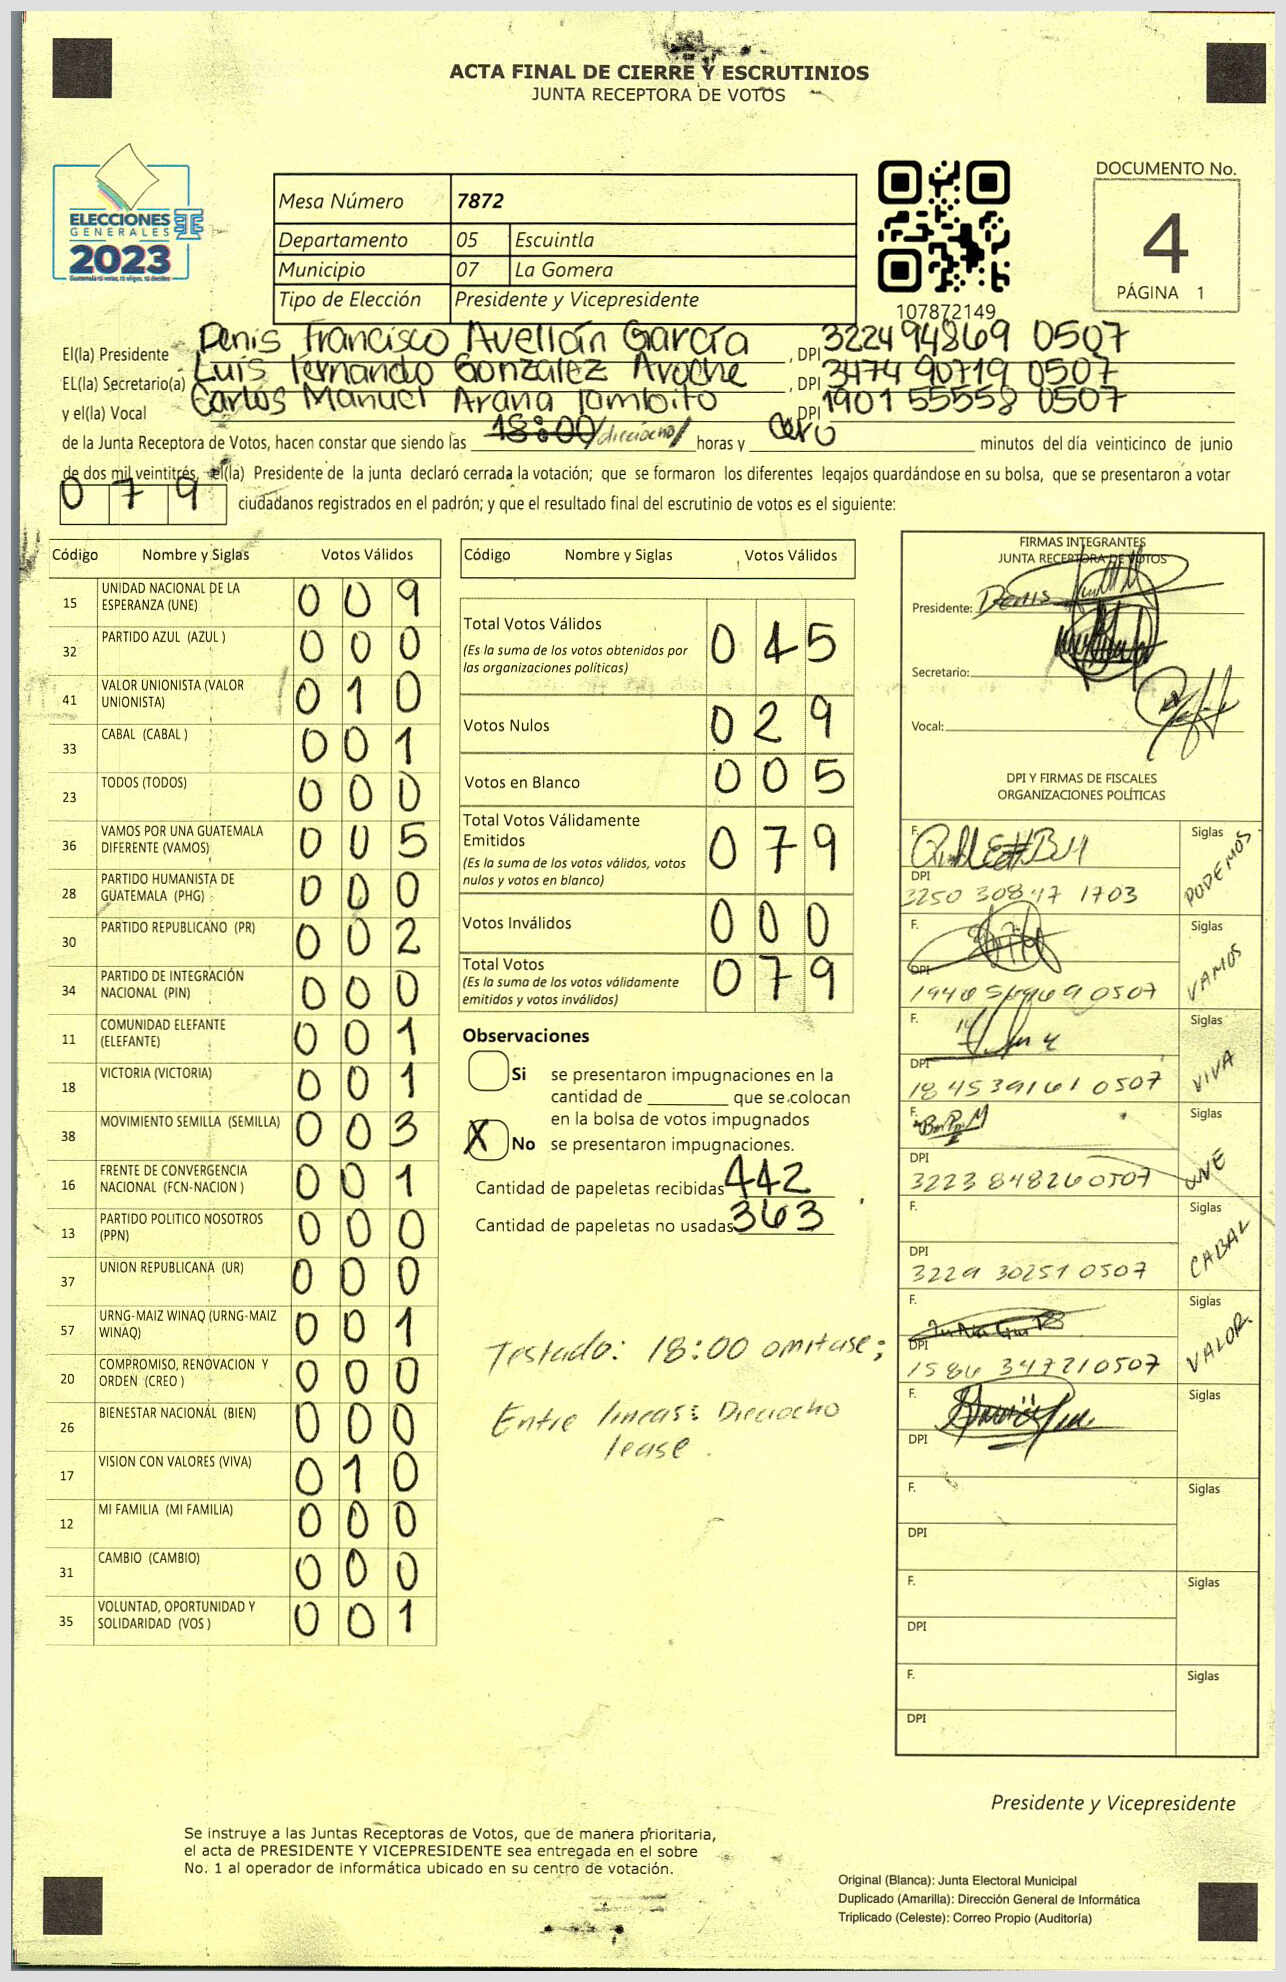 ACTA FINAL DE CIERRE Y ESCRUTINIOS
JUNTA RECEPTORA DE VOTOS
ELECCIONES
GENERALES
2023
Mesa Número 7872
Departamento 05 Escuintla
Municipio 07 La Gomera
Tipo de Elección Presidente y Vicepresidente
107872149
DOCUMENTO No.
4
PÁGINA 1
El(la) Presidente Denis Francisco Avellán García, DPI 3224 94869 0507
EL(la) Secretario(a) Luis Fernando González Aroche, DPI 3474 90719 0507
y el(la) Vocal Carlos Manuel Arana Tambito, DPI 1901 55558 0507
de la Junta Receptora de Votos, hacen constar que siendo las 18:00/dieciocho/ horas y Cero minutos del día veinticinco de junio
de dos mil veintitrés, el(la) Presidente de la junta declaró cerrada la votación; que se formaron los diferentes legajos guardándose en su bolsa, que se presentaron a votar
0 7 9 ciudadanos registrados en el padrón; y que el resultado final del escrutinio de votos es el siguiente:
Código Nombre y Siglas Votos Válidos
15 UNIDAD NACIONAL DE LA ESPERANZA (UNE) 0 0 9
32 PARTIDO AZUL (AZUL ) 0 0 0
41 VALOR UNIONISTA (VALOR UNIONISTA) 0 1 0
33 CABAL (CABAL ) 0 0 1
23 TODOS (TODOS) 0 0 0
36 VAMOS POR UNA GUATEMALA DIFERENTE (VAMOS) 0 0 5
28 PARTIDO HUMANISTA DE GUATEMALA (PHG) 0 0 0
30 PARTIDO REPUBLICANO (PR) 0 0 2
34 PARTIDO DE INTEGRACIÓN NACIONAL (PIN) 0 0 0
11 COMUNIDAD ELEFANTE (ELEFANTE) 0 0 1
18 VICTORIA (VICTORIA) 0 0 1
38 MOVIMIENTO SEMILLA (SEMILLA) 0 0 3
16 FRENTE DE CONVERGENCIA NACIONAL (FCN-NACION ) 0 0 1
13 PARTIDO POLITICO NOSOTROS (PPN) 0 0 0
37 UNION REPUBLICANA (UR) 0 0 0
57 URNG-MAIZ WINAQ (URNG-MAIZ WINAQ) 0 0 1
20 COMPROMISO, RENOVACION Y ORDEN (CREO ) 0 0 0
26 BIENESTAR NACIONAL (BIEN) 0 0 0
17 VISION CON VALORES (VIVA) 0 1 0
12 MI FAMILIA (MI FAMILIA) 0 0 0
31 CAMBIO (CAMBIO) 0 0 0
35 VOLUNTAD, OPORTUNIDAD Y SOLIDARIDAD (VOS ) 0 0 1
Código Nombre y Siglas Votos Válidos
Total Votos Válidos 0 4 5
(Es la suma de los votos obtenidos por
las organizaciones políticas)
Votos Nulos 0 2 9
Votos en Blanco 0 0 5
Total Votos Válidamente
Emitidos 0 7 9
(Es la suma de los votos válidos, votos
nulos y votos en blanco)
Votos Inválidos 0 0 0
Total Votos 0 7 9
(Es la suma de los votos válidamente
emitidos y votos inválidos)
Observaciones
Si se presentaron impugnaciones en la
cantidad de ________ que se colocan
en la bolsa de votos impugnados
X No se presentaron impugnaciones.
Cantidad de papeletas recibidas 442
Cantidad de papeletas no usadas 363
Testado: 18:00 omitase;
Entre lineas: Dieciocho
lease.
FIRMAS INTEGRANTES
JUNTA RECEPTORA DE VOTOS
Presidente: Denis
Secretario:
Vocal:
DPI Y FIRMAS DE FISCALES
ORGANIZACIONES POLÍTICAS
F. Siglas PODEMOS
DPI 3250 30847 1703
F. Siglas VAMOS
DPI 0507
F. Siglas VIVA
DPI 1845391610507
F. Siglas UNE
DPI 3223 84826 0507
F. Siglas CABAL
DPI 3229 30251 0507
F. Siglas VALOR
DPI 1586 34721 0507
F. Siglas
DPI
F. Siglas
DPI
F. Siglas
DPI
F. Siglas
DPI
Presidente y Vicepresidente
Se instruye a las Juntas Receptoras de Votos, que de manera prioritaria,
el acta de PRESIDENTE Y VICEPRESIDENTE sea entregada en el sobre
No. 1 al operador de informática ubicado en su centro de votación.
Original (Blanca): Junta Electoral Municipal
Duplicado (Amarilla): Dirección General de Informática
Triplicado (Celeste): Correo Propio (Auditoría)